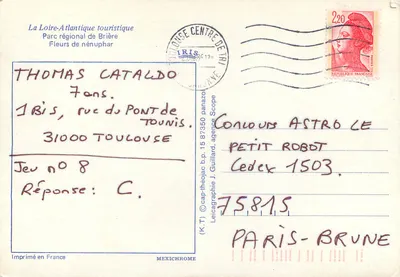 La Loire-Atlantique touristique
Parc régional de Brière
Fleurs de nénuphar
THOMAS CATALDO
7 ans.
1 Bis, rue du PONT de
TOUNIS.
31000 TOULOUSE
Jeu nº 8
Réponse: C.
Imprimé en France
MEXICHROME
(K.T) © cap-théojac b.p. 15 87350 panazol
Lexicagraphie J. Guillard, agence Scope
TOULOUSE CENTRE DE TRI
2,20
REPUBLIQUE FRANCAISE
CONCOURS ASTRO LE
PETIT ROBOT
Cedex 1503.
75815
PARIS-BRUNE